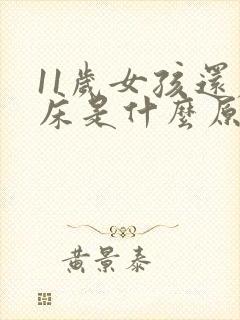 11歲女孩還
床是什麼原
黃景泰